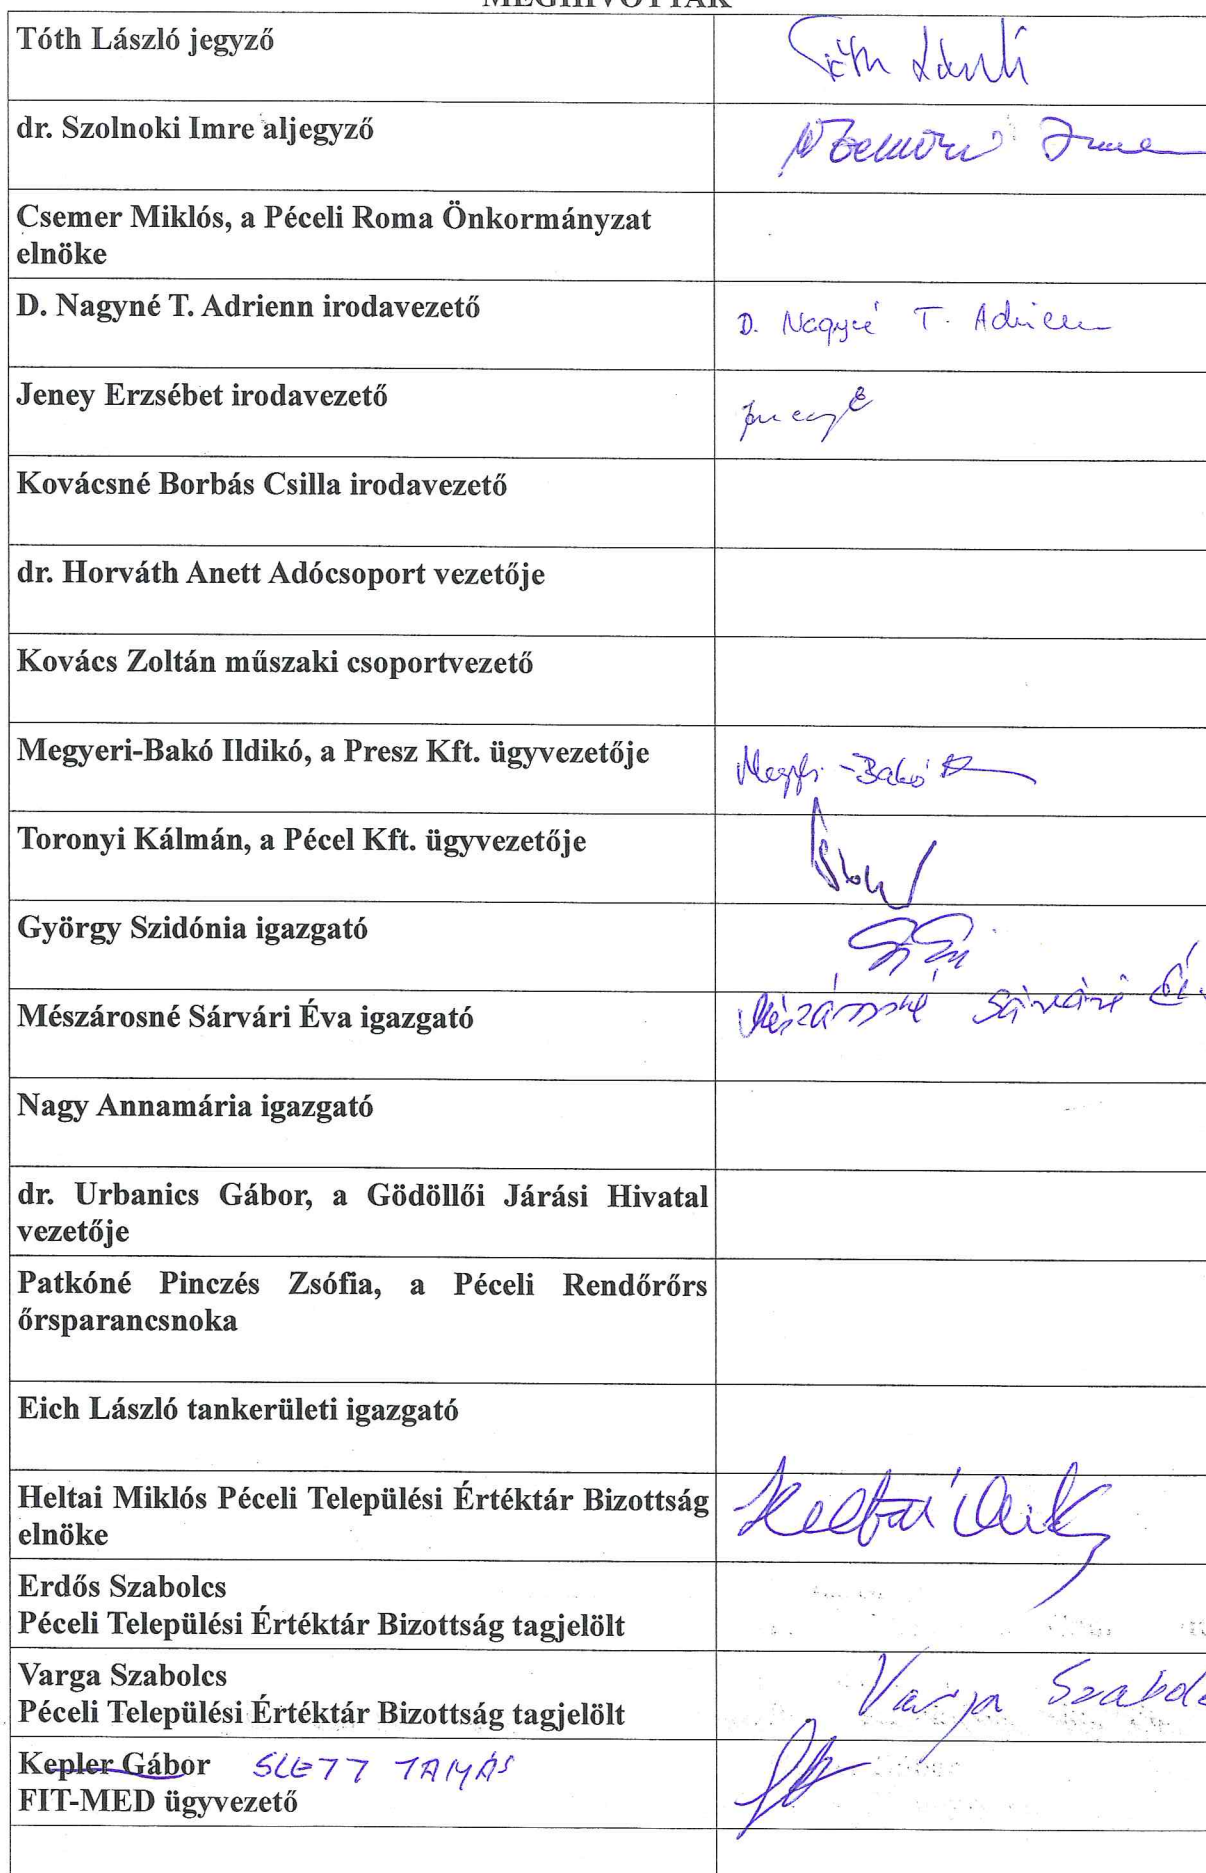 MEGHÍVOTTAK
Tóth László jegyző
Tóth László
dr. Szolnoki Imre aljegyző
Imre
Csemer Miklós, a Péceli Roma Önkormányzat
elnöke
D. Nagyné T. Adrienn irodavezető
D. Nagyné T. Adrienn
Jeney Erzsébet irodavezető
Jeney E
Kovácsné Borbás Csilla irodavezető
dr. Horváth Anett Adócsoport vezetője
Kovács Zoltán műszaki csoportvezető
Megyeri-Bakó Ildikó, a Presz Kft. ügyvezetője
Megyeri-Bakó
Toronyi Kálmán, a Pécel Kft. ügyvezetője
György Szidónia igazgató
Mészárosné Sárvári Éva igazgató
Mészárosné Sárvári Év
Nagy Annamária igazgató
dr. Urbanics Gábor, a Gödöllői Járási Hivatal
vezetője
Patkóné Pinczés Zsófia, a Péceli Rendőrőrs
őrsparancsnoka
Eich László tankerületi igazgató
Heltai Miklós Péceli Települési Értéktár Bizottság
elnöke
Heltai Mik
Erdős Szabolcs
Péceli Települési Értéktár Bizottság tagjelölt
Varga Szabolcs
Péceli Települési Értéktár Bizottság tagjelölt
Varga Szabolc
Kepler Gábor SLETT TAMÁS
FIT-MED ügyvezető